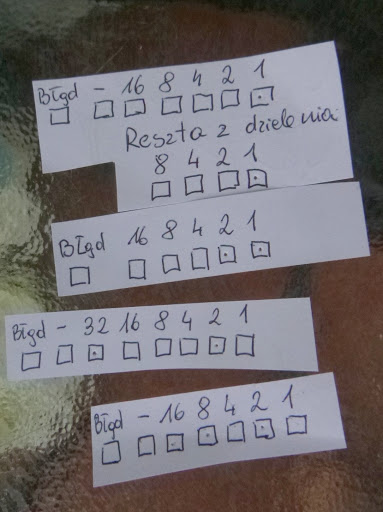 Błąd - 16 8 4 2 1
Reszta z dzielenia
8 4 2 1
Błąd 16 8 4 2 1
Błąd - 32 16 8 4 2 1
Błąd - 16 8 4 2 1